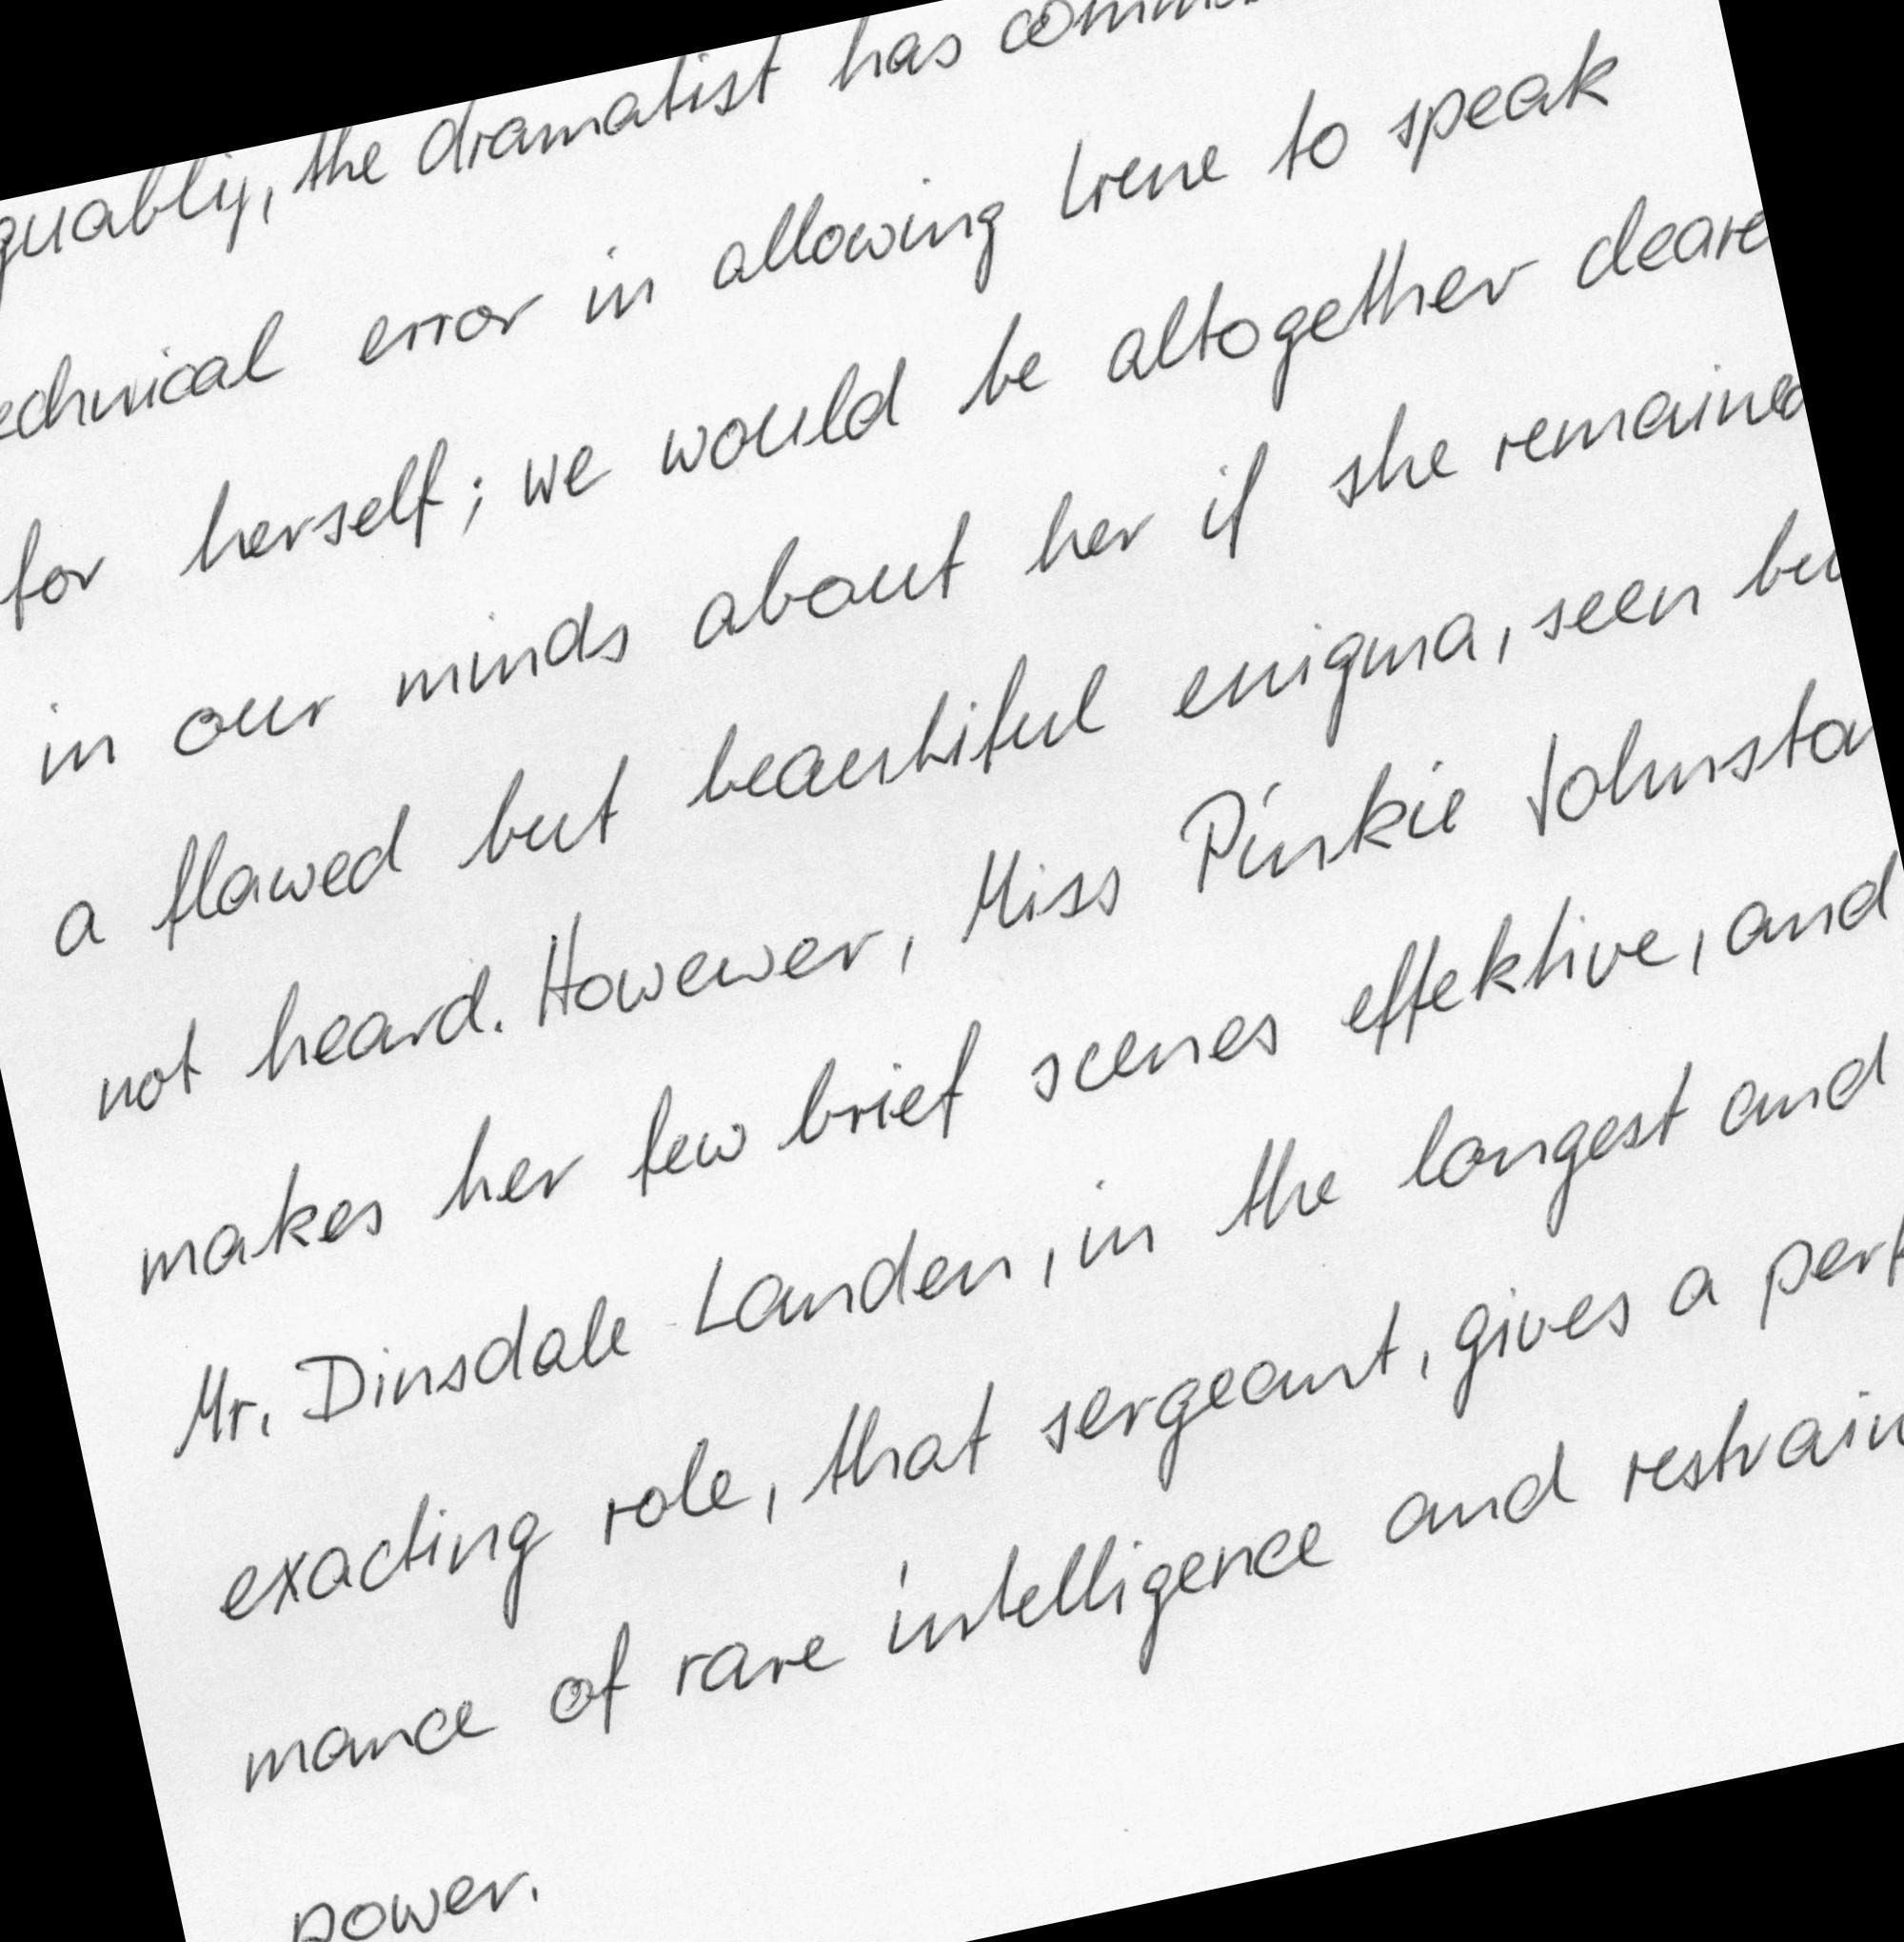 the dramatist has
error in allowing Irene to speak
for herself; we would be altogether
in our minds about her if she remained
a flawed but beautiful enigma, seen
not heard. Howewer, Miss Pinkie
makes her few brief scenes effektive, and
Mr. Dinsdale Landen, in the longest and
exacting role, that sergeant, gives a
mance of rare intelligence and
power.